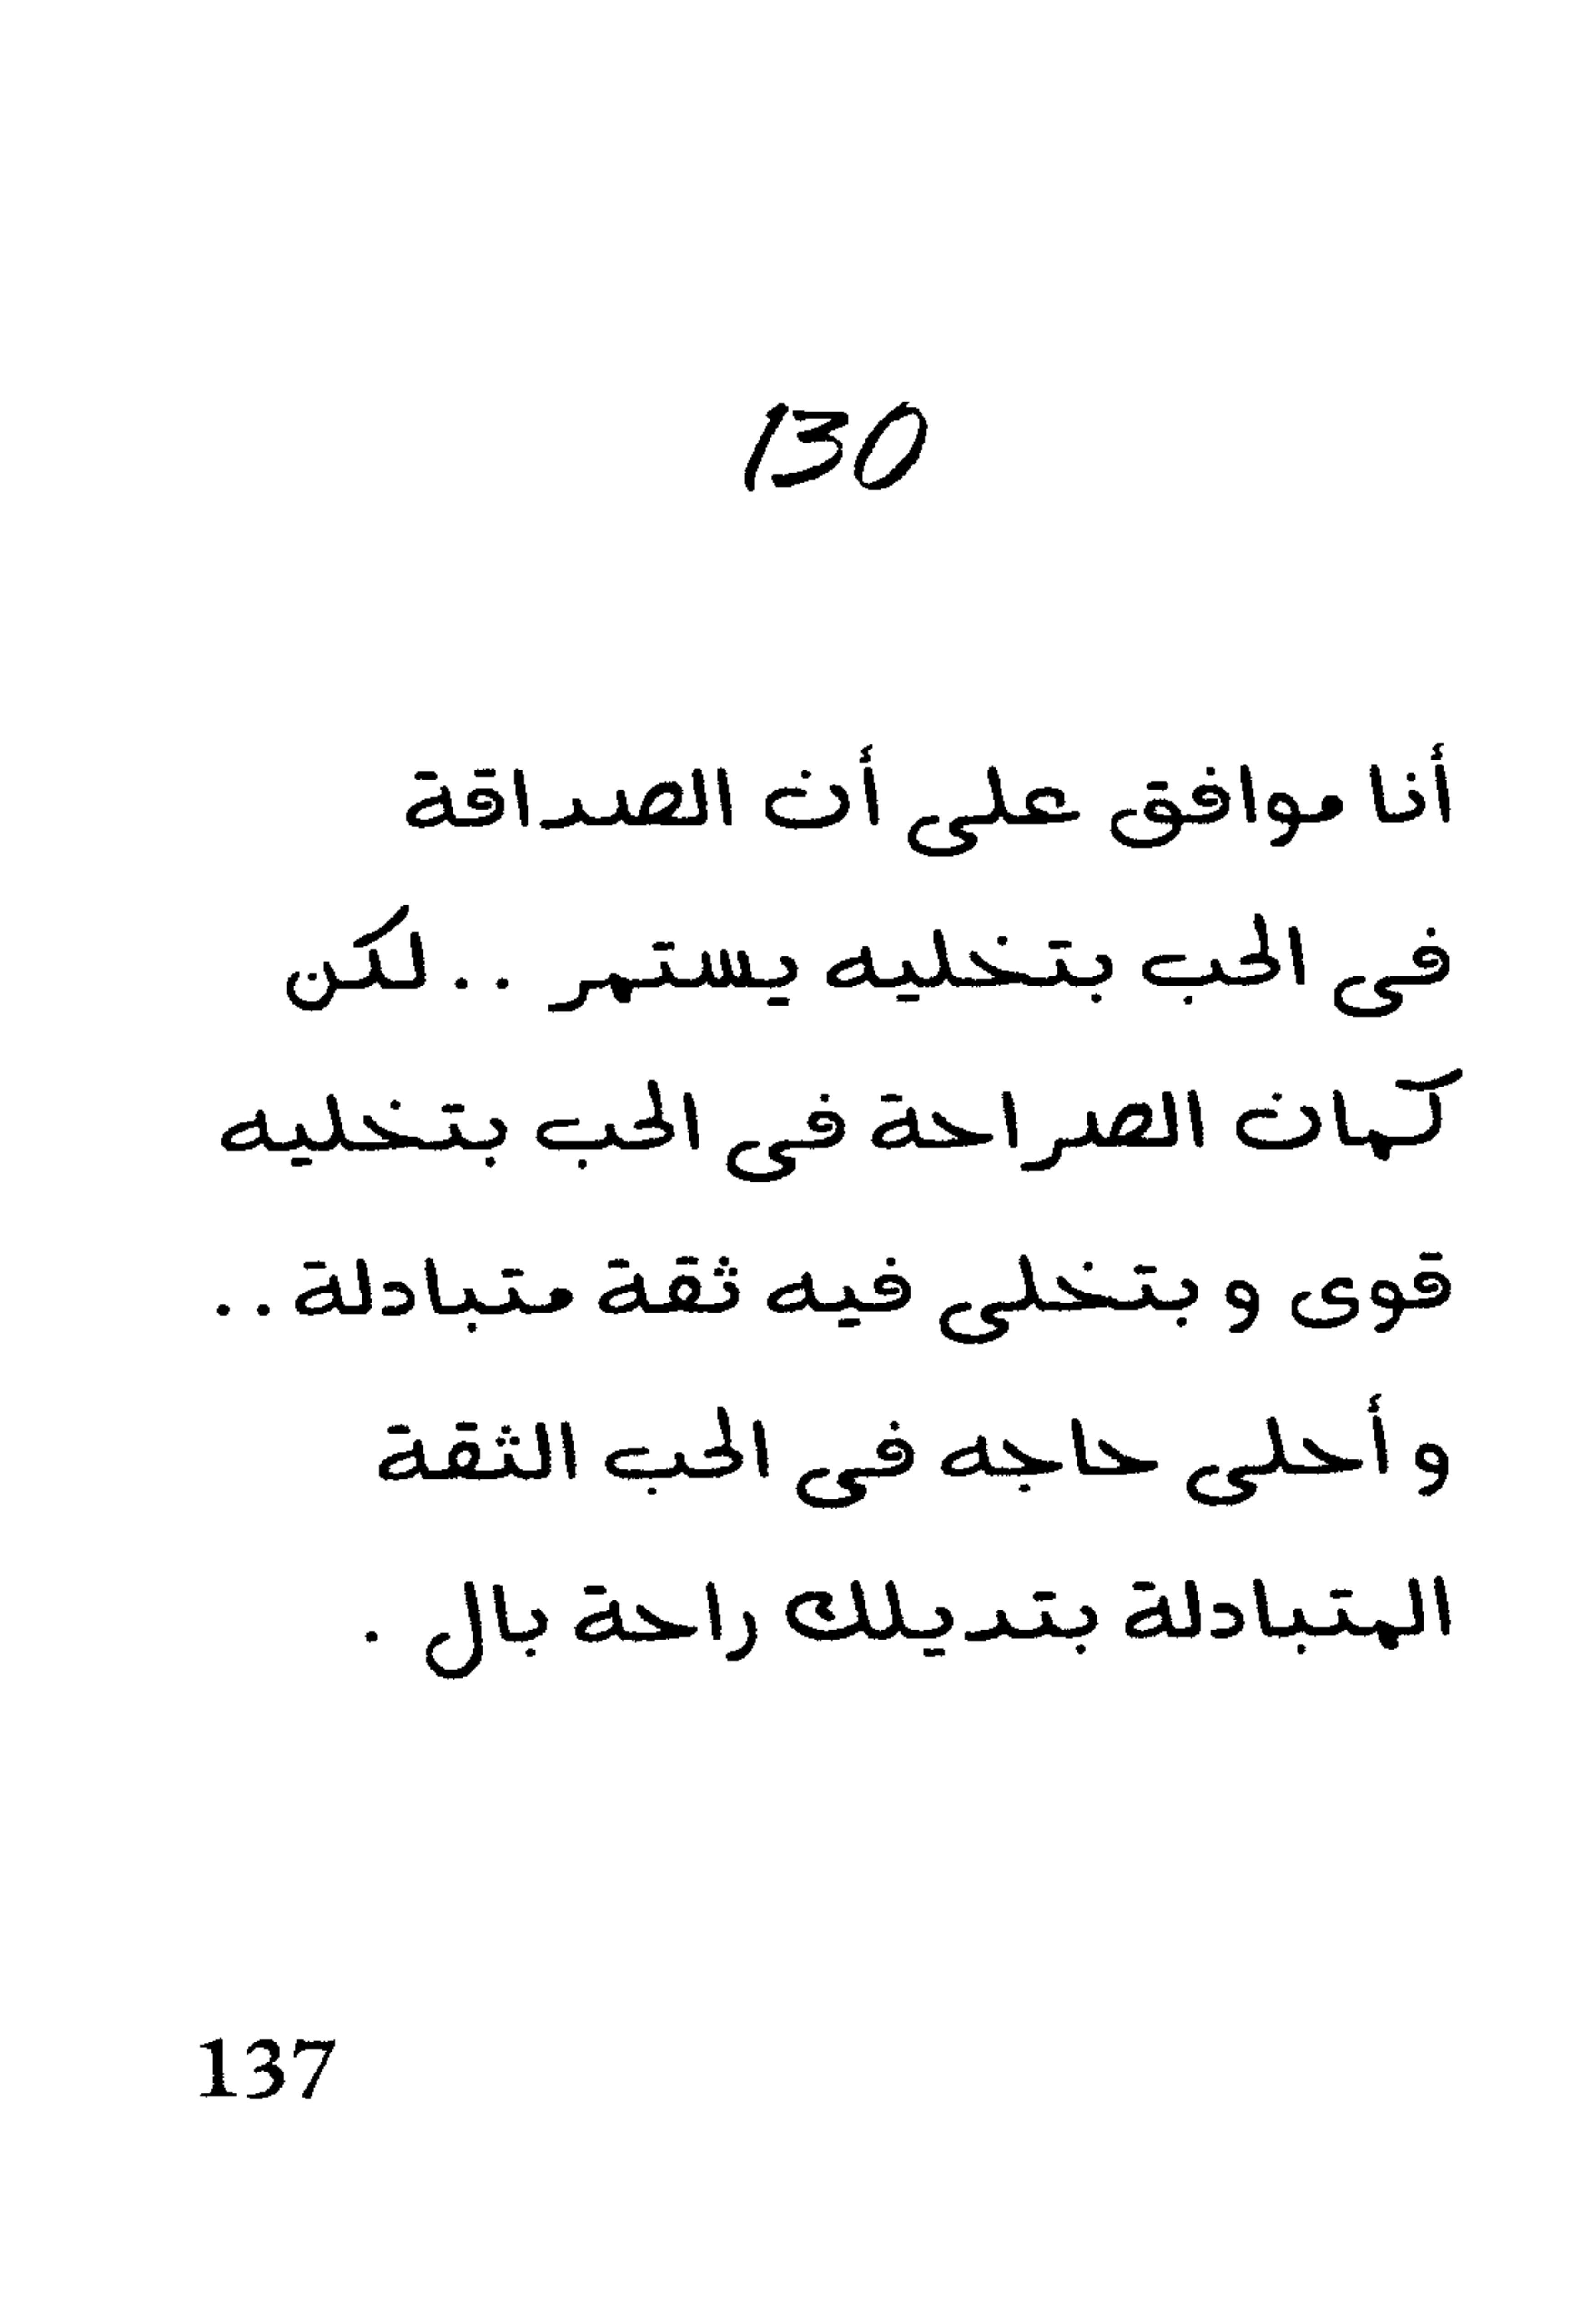 130
أنا موافق على أن الصداقة
فى الحب بتخليه يستمر .. لكن
كمان الصراحة فى الحب بتخليه
قوى و بتخلى فيه ثقة متبادلة ..
و أحلى حاجه فى الحب الثقة
المتبادلة بتديلك راحة بال .
137